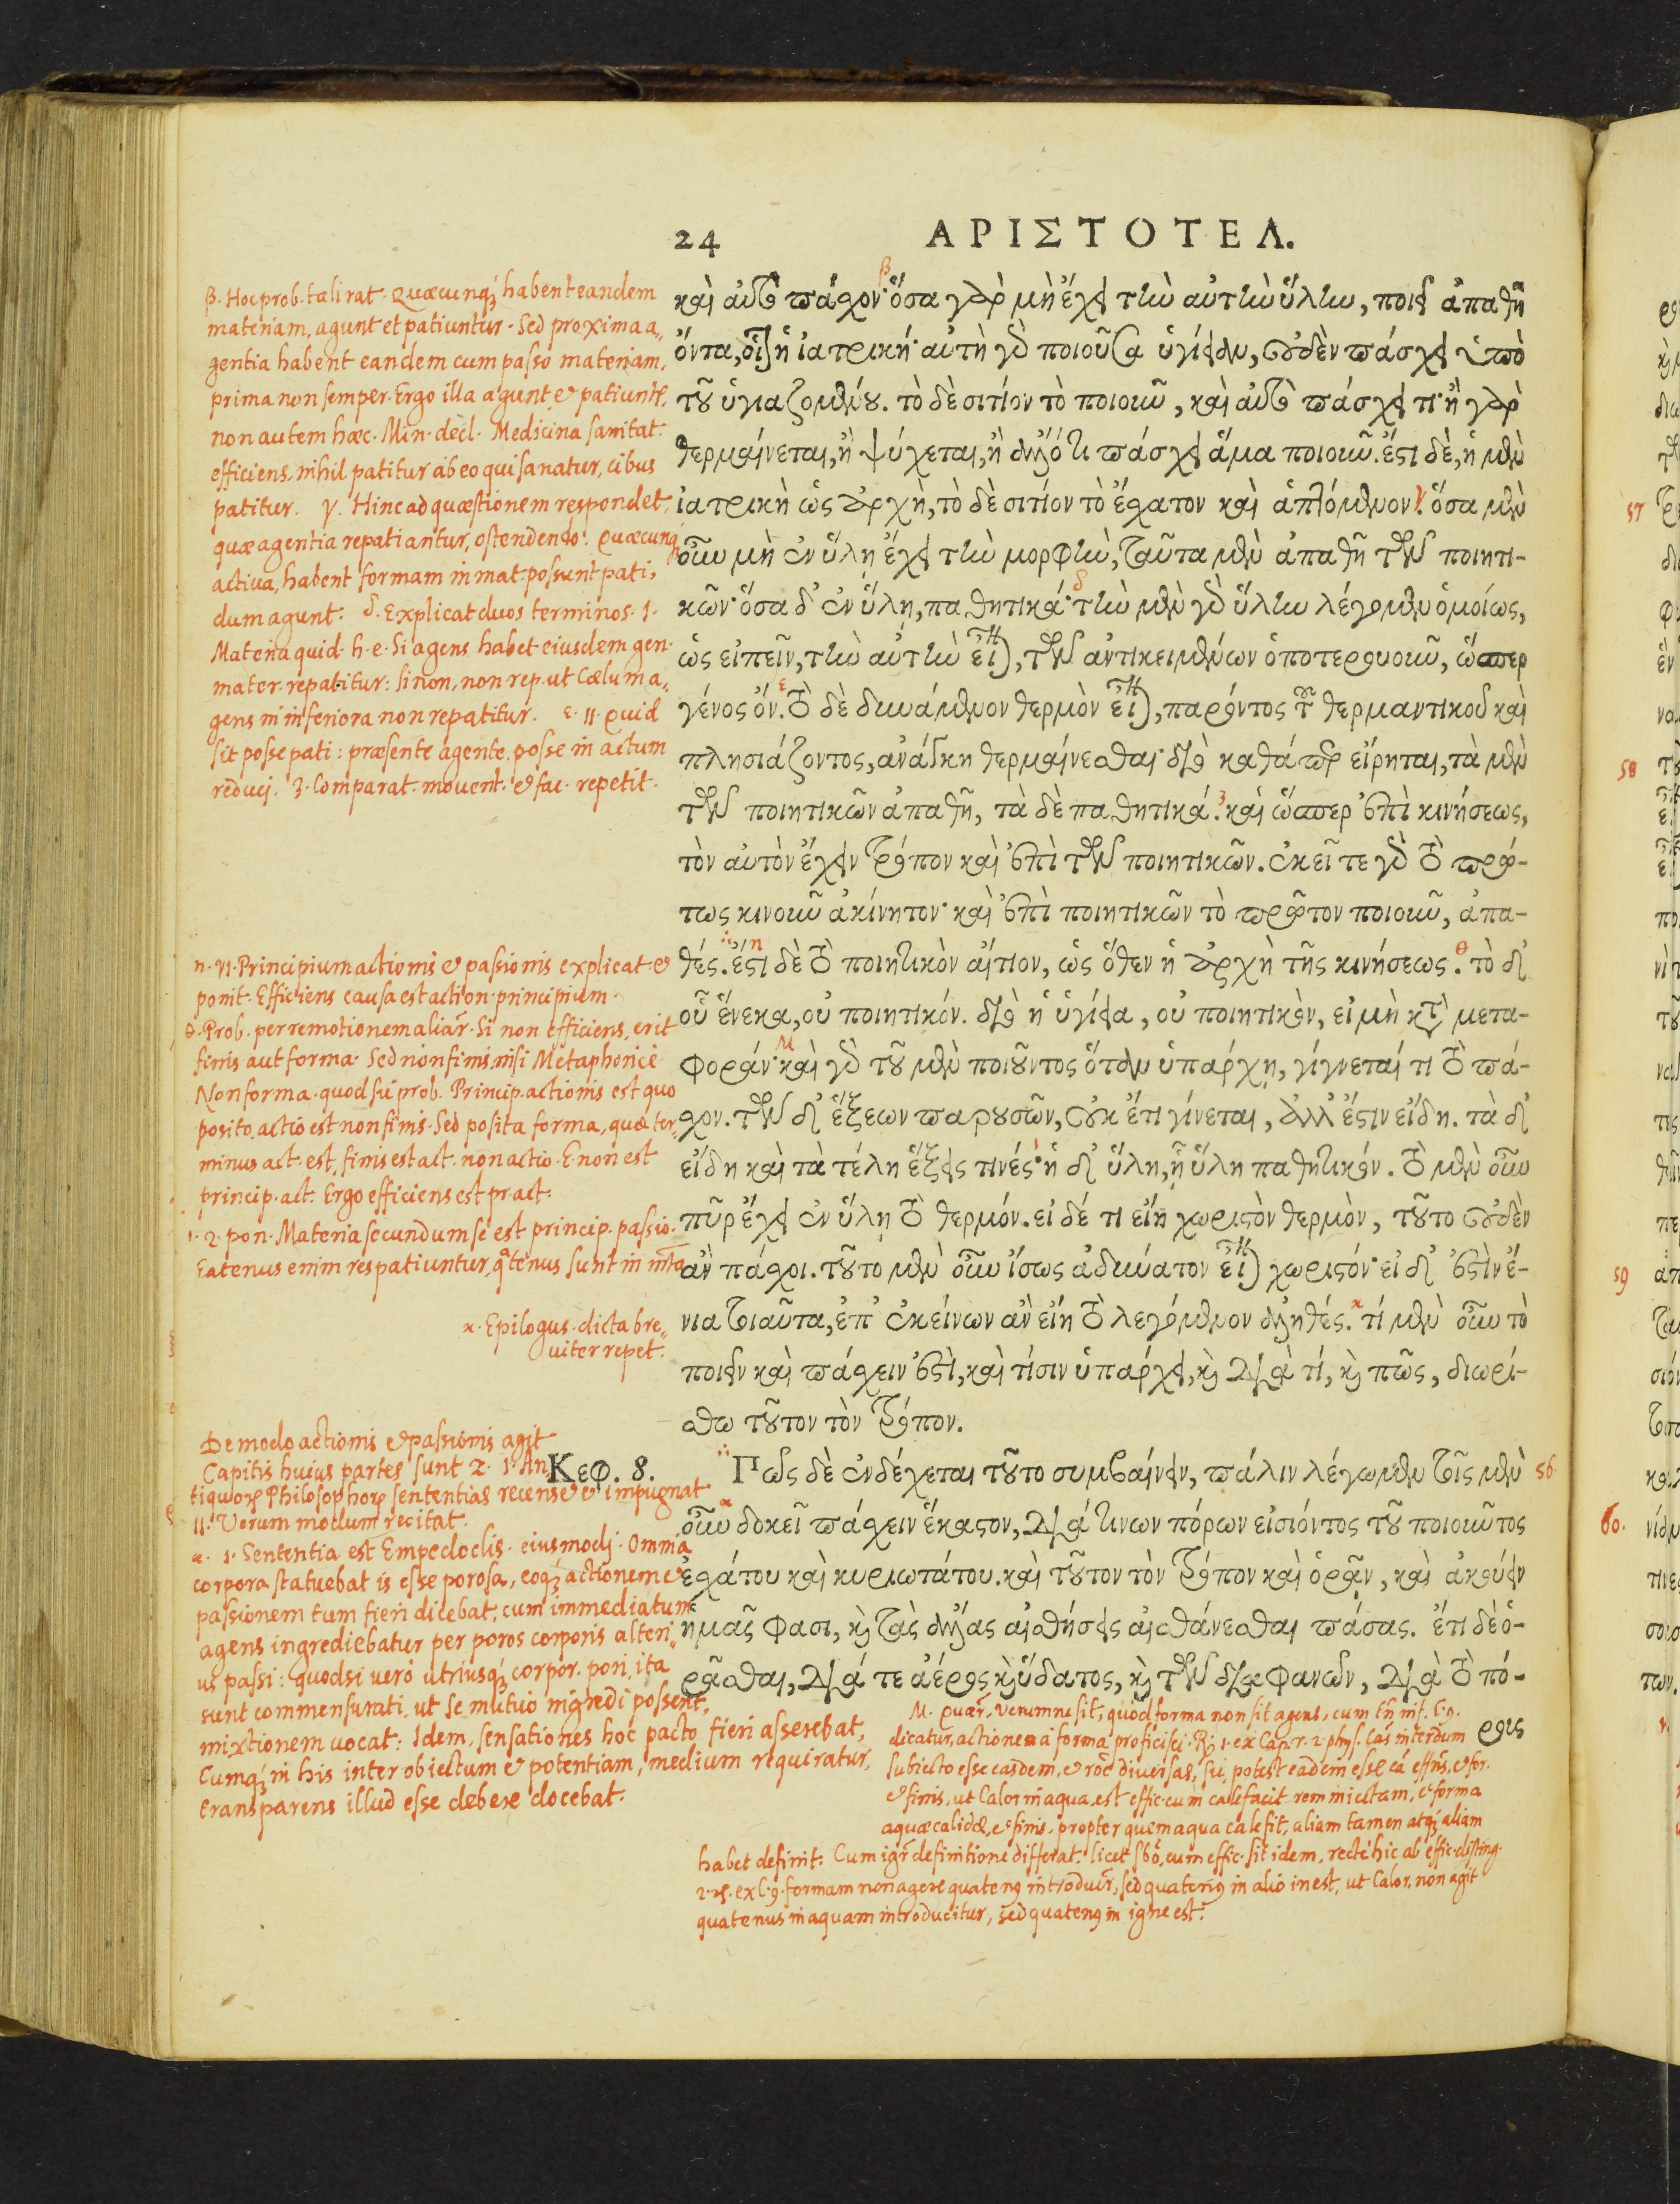 24 ΑΡΙΣΤΟΤΕΛ.
καὶ αὐτὸ πάσχον· ὅσα γὰρ μὴ ἔχει τὴν αὐτὴν ὕλην, ποιεῖ ἀπαθῆ
ὄντα, οἷον ἡ ἰατρική· αὐτὴ γὰρ ποιοῦσα ὑγίειαν, οὐδὲν πάσχει ὑπὸ
τοῦ ὑγιαζομένου. τὸ δὲ σιτίον τὸ ποιοῦν, καὶ αὐτὸ πάσχει τι· ἢ γὰρ
θερμαίνεται, ἢ ψύχεται, ἢ ἄλλό τι πάσχει ἅμα ποιοῦν. ἔστι δὲ, ἡ μὲν
ἰατρικὴ ὡς ἀρχὴ, τὸ δὲ σιτίον τὸ ἔσχατον καὶ ἁπτόμενον. ὅσα μὲν
οὖν μὴ ἐν ὕλῃ ἔχει τὴν μορφὴν, ταῦτα μὲν ἀπαθῆ τῶν ποιητι-
κῶν· ὅσα δ' ἐν ὕλῃ, παθητικά· τὴν μὲν γὰρ ὕλην λέγομεν ὁμοίως,
ὡς εἰπεῖν, τὴν αὐτὴν εἶναι, τῶν ἀντικειμένων ὁποτερουοῦν, ὥσπερ
γένος ὄν. τὸ δὲ δυνάμενον θερμὸν εἶναι, παρόντος τοῦ θερμαντικοῦ καὶ
πλησιάζοντος, ἀνάγκη θερμαίνεσθαι· διὸ καθάπερ εἴρηται, τὰ μὲν
τῶν ποιητικῶν ἀπαθῆ, τὰ δὲ παθητικά. καὶ ὥσπερ ἐπὶ κινήσεως,
τὸν αὐτὸν ἔχειν τρόπον καὶ ἐπὶ τῶν ποιητικῶν. ἐκεῖ τε γὰρ τὸ πρώ-
τως κινοῦν ἀκίνητον· καὶ ἐπὶ ποιητικῶν τὸ πρῶτον ποιοῦν, ἀπα-
θές. ἔστι δὲ τὸ ποιητικὸν αἴτιον, ὡς ὅθεν ἡ ἀρχὴ τῆς κινήσεως. τὸ δ'
οὗ ἕνεκα, οὐ ποιητικόν. διὸ ἡ ὑγίεια, οὐ ποιητικὸν, εἰ μὴ κατὰ μετα-
φοράν· καὶ γὰρ τοῦ μὲν ποιοῦντος ὅταν ὑπάρχῃ, γίγνεταί τι τὸ πά-
σχον. τῶν δ' ἕξεων παρουσῶν, οὐκ ἔτι γίνεται, ἀλλ' ἔστιν εἴδη. τὰ δ'
εἴδη καὶ τὰ τέλη ἕξεις τινές· ἡ δ' ὕλη, ᾗ ὕλη παθητικόν. τὸ μὲν οὖν
πῦρ ἔχει ἐν ὕλῃ τὸ θερμόν. εἰ δέ τι εἴη χωριστὸν θερμὸν, τοῦτο οὐδὲν
ἂν πάσχοι. τοῦτο μὲν οὖν ἴσως ἀδύνατον εἶναι χωριστόν· εἰ δ' ἐστὶν ἔ-
νια τοιαῦτα, ἐπ' ἐκείνων ἂν εἴη τὸ λεγόμενον ἀληθές. τί μὲν οὖν τὸ
ποιεῖν καὶ πάσχειν ἐστὶ, καὶ τίσιν ὑπάρχει, καὶ διὰ τί, καὶ πῶς, διωρί-
σθω τοῦτον τὸν τρόπον.
Κεφ. 8.
Πῶς δὲ ἐνδέχεται τοῦτο συμβαίνειν, πάλιν λέγωμεν τοῖς μὲν 56.
οὖν δοκεῖ πάσχειν ἕκαστον, διά τινων πόρων εἰσιόντος τοῦ ποιοῦντος
ἐσχάτου καὶ κυριωτάτου. καὶ τοῦτον τὸν τρόπον καὶ ὁρᾶν, καὶ ἀκούειν
ἡμᾶς φασι, καὶ τὰς ἄλλας αἰσθήσεις αἰσθάνεσθαι πάσας. ἔτι δὲ ὁ-
ρᾶσθαι, διά τε ἀέρος καὶ ὕδατος, καὶ τῶν διαφανῶν, διὰ τὸ πό-
ρους
β. Hoc prob. tali rat. Quæcunqȝ habent eandem
materiam, agunt et patiuntur. Sed proxima a„
gentia habent eandem cum passo materiam,
prima non semper. Ergo illa agunt et patiunt̃,
non autem hæc. Min. decl. Medicina sanitat.
efficiens, nihil patitur ab eo qui sanatur, cibus
patitur. γ. Hinc ad quæstionem respondet,
quæ agentia repatiantur, ostendendo. Quæcunqȝ
activa, habent formam in mat. possunt pati,
dum agunt. δ. Explicat duos terminos. 1.
Materia quid. h. e. Si agens habet eiusdem gen.
mater. repatitur: si non, non rep. ut Cælum a„
gens in inferiora non repatitur. ε. 11. Quid
sit posse pati: præsente agente posse in actum
reduci. ȝ. Comparat. movent. et fac. repetit.
η. VI. Principium actionis et passionis explicat et
ponit. Efficiens causa est action. principium.
θ. Prob. per remotionem aliar. Si non efficiens, erit
finis aut forma. Sed non finis, nisi Metaphoricè.
Non forma. quod sic prob. Princip. actionis est quo
posito, actio est non finis. Sed posita forma, quæ ter„
minus act. est, finis est act. non actio. E. non est
princip. act. Ergo efficiens est pr. act.
ι. 2. pon. Materia secundum se est princip. passio.
Eatenus enim res patiuntur, qtenus sunt in mta
κ. Epilogus. dicta bre„
viter repet.
De modo actionis et passionis agit
Capitis huius partes sunt 2. 1. An
tiquorȝ Philosophorȝ sententias recenset et impugnat
11. Verum modum recitat.
α. 1. Sententia est Empedoclis. eiusmodj. Omnia
corpora statuebat is esse porosa, eoqȝ actionem et
passionem tum fieri dicebat, cum immediatum
agens ingrediebatur per poros corporis alteri„
us passi: quodsi verò utriusqȝ corpor. pori, ita
sunt commensurati, ut se mutuò ingredi possent,
mixtionem vocat. Idem, sensationes hoc pacto fieri asserebat,
Cumqȝ in his inter obiectum et potentiam, medium requiratur,
transparens illud esse debere docebat.
M. Quær. Verumne sit, quod forma non sit agens, cum tñ inf. c. 9.
dicatur, actionem à forma proficisci. Rȝ 1. ex Cap. 7. 2. phys. Cas interdum
subiecto esse easdem, et rōe diversas, sci, potest eadem esse cā effns, et for.
et finis, ut Calor in aqua est effic. cum calefacit rem iniectam, et forma
aquæ calidæ, et finis, propter quem aqua calefit, aliam tamen atqȝ aliam
habet definit. Cum igr definitione differat. licet sbō, cum effic. sit idem, rectè hic ab effic. disting.
2. rs. ex c. 9. formam non agere quateng introducir, sed quateng in alio inest, ut Calor, non agit
quatenus in aquam introducitur, sed quateng in igne est.
57
58
59
60.